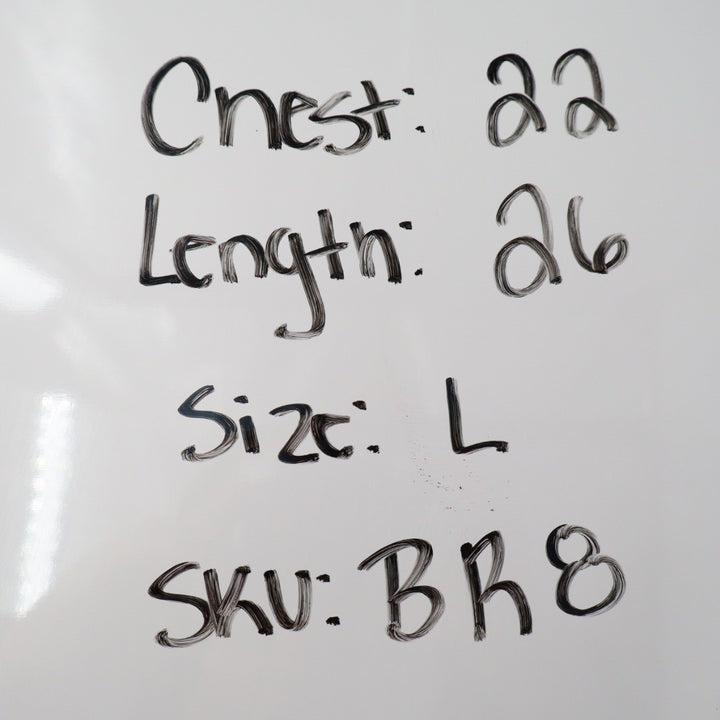 Chest: 22
Length: 26
Size: L
SKU: BR8